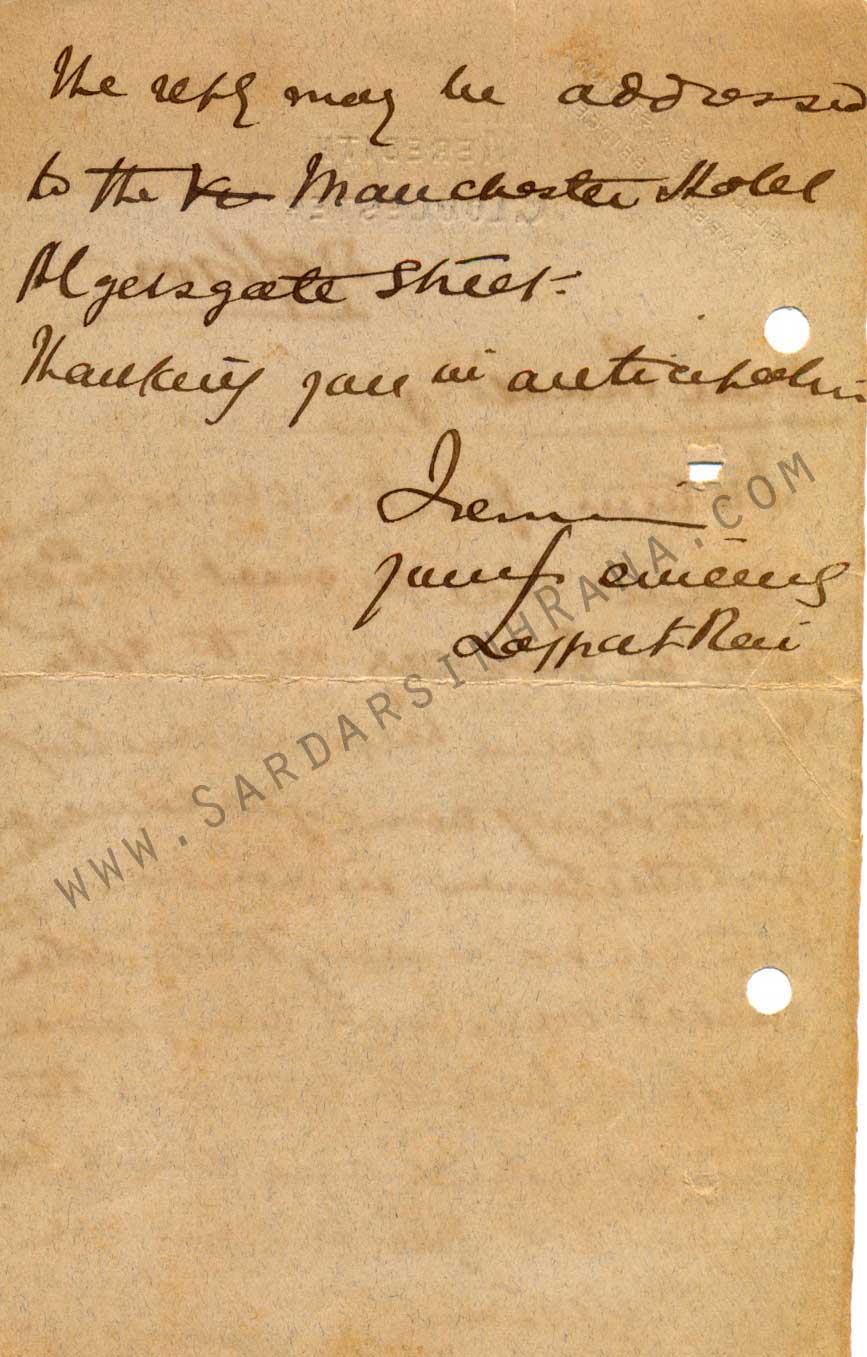 The reply may be addressed
to the Manchester Hotel
Algersgate Street.
Thanking you in anticipation
I remain
yours sincerely
Lajpat Rai
www.SARDARSINHRANA.COM